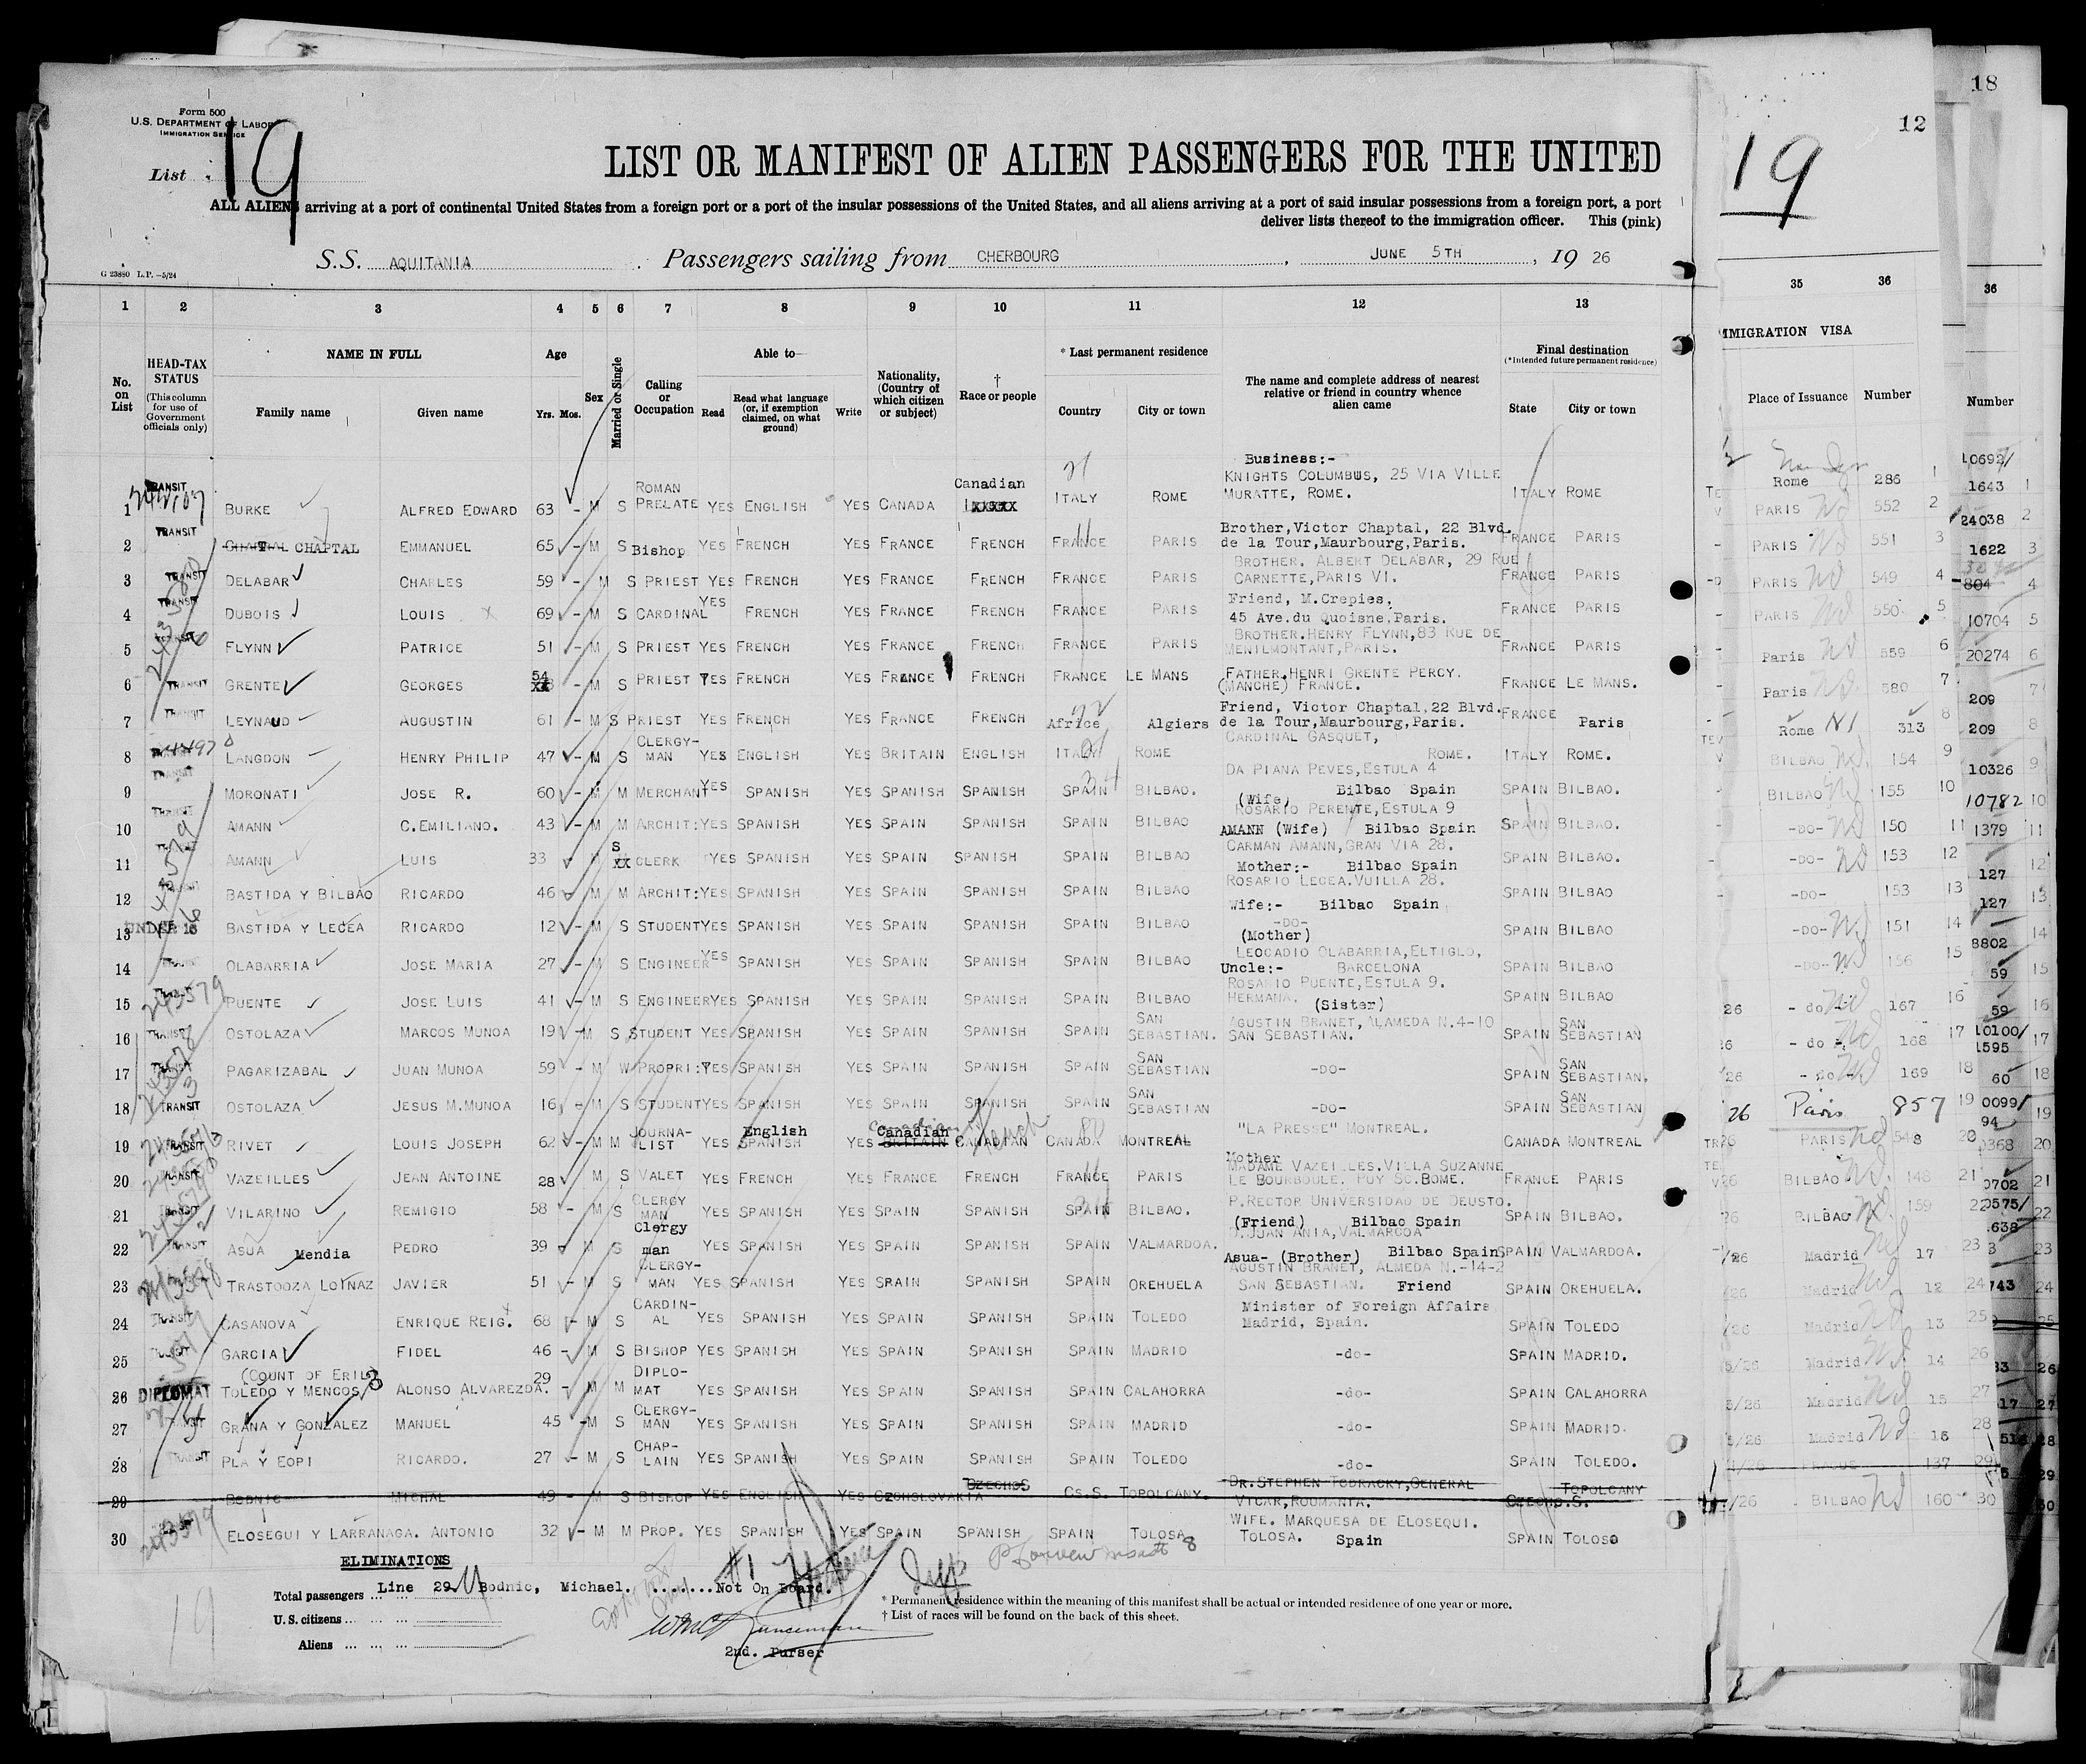 18
12
Form 500
U.S. DEPARTMENT OF LABOR
IMMIGRATION SERVICE
List 19
19
LIST OR MANIFEST OF ALIEN PASSENGERS FOR THE UNITED
ALL ALIENS arriving at a port of continental United States from a foreign port or a port of the insular possessions of the United States, and all aliens arriving at a port of said insular possessions from a foreign port, a port
deliver lists thereof to the immigration officer. This (pink)
S.S. AQUITANIA Passengers sailing from CHERBOURG, JUNE 5TH, 19 26
G 23880 L.P.-5/24
1 2 3 4 5 6 7 8 9 10 11 12 13 35 36 36
No. on List
HEAD-TAX STATUS (This column for use of Government officials only)
NAME IN FULL Family name Given name
Age Yrs. Mos.
Sex
Married or Single
Calling or Occupation
Able to— Read Read what language (or, if exemption claimed, on what ground) Write
Nationality, (Country of which citizen or subject)
† Race or people
* Last permanent residence Country City or town
The name and complete address of nearest relative or friend in country whence alien came
Final destination (*Intended future permanent residence) State City or town
MMIGRATION VISA
Place of Issuance Number Number
1 TRANSIT BURKE ALFRED EDWARD 63 - M S ROMAN PRELATE YES ENGLISH YES CANADA Canadian ITALY ROME Business:- KNIGHTS COLUMBUS, 25 VIA VILLE MURATTE, ROME. ITALY ROME
2 TRANSIT CHAPTAL EMMANUEL 65 - M S Bishop YES FRENCH YES FRANCE FRENCH FRANCE PARIS Brother,Victor Chaptal, 22 Blvd. de la Tour,Maurbourg,Paris. FRANCE PARIS
3 TRANSIT DELABAR CHARLES 59 - M S PRIEST YES FRENCH YES FRANCE FRENCH FRANCE PARIS BROTHER. ALBERT DELABAR, 29 RUE CARNETTE,PARIS VI. FRANCE PARIS
4 TRANSIT DUBOIS LOUIS 69 - M S CARDINAL YES FRENCH YES FRANCE FRENCH FRANCE PARIS Friend, M.Crepies, 45 Ave.du Quoisne,Paris. FRANCE PARIS
5 TRANSIT FLYNN PATRICE 51 - M S PRIEST YES FRENCH YES FRANCE FRENCH FRANCE PARIS BROTHER.HENRY FLYNN,83 RUE DE MENILMONTANT,PARIS. FRANCE PARIS
6 TRANSIT GRENTE GEORGES 54 - M S PRIEST YES FRENCH YES FRANCE FRENCH FRANCE LE MANS FATHER.HENRI GRENTE PERCY. (MANCHE) FRANCE. FRANCE LE MANS.
7 TRANSIT LEYNAUD AUGUSTIN 61 - M S PRIEST YES FRENCH YES FRANCE FRENCH Africe Algiers Friend, Victor Chaptal,22 Blvd. de la Tour,Maurbourg,Paris. FRANCE Paris
8 LANGDON HENRY PHILIP 47 - M S CLERGY-MAN YES ENGLISH YES BRITAIN ENGLISH ITALY ROME CARDINAL GASQUET, ROME. ITALY ROME.
9 TRANSIT MORONATI JOSE R. 60 - M M MERCHANT YES SPANISH YES SPANISH SPANISH SPAIN BILBAO. DA PIANA PEVES,ESTULA 4 (Wife) Bilbao Spain SPAIN BILBAO.
10 AMANN C.EMILIANO. 43 - M M ARCHIT: YES SPANISH YES SPAIN SPANISH SPAIN BILBAO ROSARIO PERENTE,ESTULA 9 AMANN (Wife) Bilbao Spain SPAIN BILBAO.
11 AMANN LUIS 33 M S CLERK YES SPANISH YES SPAIN SPANISH SPAIN BILBAO CARMAN AMANN,GRAN VIA 28. Mother:- Bilbao Spain SPAIN BILBAO.
12 BASTIDA Y BILBAO RICARDO 46 M M ARCHIT: YES SPANISH YES SPAIN SPANISH SPAIN BILBAO ROSARIO LECEA.VUILLA 28. Wife:- Bilbao Spain SPAIN BILBAO
13 UNDER 16 BASTIDA Y LECEA RICARDO 12 - M S STUDENT YES SPANISH YES SPAIN SPANISH SPAIN BILBAO -DO- (Mother) SPAIN BILBAO
14 OLABARRIA JOSE MARIA 27 - M S ENGINEER YES SPANISH YES SPAIN SPANISH SPAIN BILBAO LEOCADIO OLABARRIA,ELTIGLO, Uncle:- BARCELONA SPAIN BILBAO
15 TRANSIT 243579 PUENTE JOSE LUIS 41 - M S ENGINEER YES SPANISH YES SPAIN SPANISH SPAIN BILBAO ROSARIO PUENTE,ESTULA 9. HERMANA. (Sister) SPAIN BILBAO
16 TRANSIT OSTOLAZA MARCOS MUNOA 19 - M S STUDENT YES SPANISH YES SPAIN SPANISH SPAIN SAN SEBASTIAN. AGUSTIN BRANET,ALAMEDA N.4-10 SAN SEBASTIAN. SPAIN SAN SEBASTIAN
17 TRANSIT PAGARIZABAL JUAN MUNOA 59 - M W PROPRI: YES SPANISH YES SPAIN SPANISH SPAIN SAN SEBASTIAN -DO- SPAIN SAN SEBASTIAN.
18 TRANSIT OSTOLAZA JESUS M.MUNOA 16 M S STUDENT YES SPANISH YES SPAIN SPANISH SPAIN SAN SEBASTIAN -DO- SPAIN SAN SEBASTIAN
19 TRANSIT RIVET LOUIS JOSEPH 62 - M M JOURNA-LIST YES English SPANISH YES Canadian BRITAIN CANADIAN French CANADA MONTREAL "LA PRESSE" MONTREAL. CANADA MONTREAL
20 TRANSIT VAZEILLES JEAN ANTOINE 28 M S VALET YES FRENCH YES FRANCE FRENCH FRANCE PARIS Mother MADAME VAZEILLES.VILLA SUZANNE LE BOURBOULE. PUY SC.BOME. FRANCE PARIS
21 TRANSIT VILARINO REMIGIO 58 - M S CLERGY MAN YES SPANISH YES SPAIN SPANISH SPAIN BILBAO. P.RECTOR UNIVERSIDAD DE DEUSTO. (Friend) Bilbao Spain SPAIN BILBAO.
22 TRANSIT ASUA Mendia PEDRO 39 M S Clergy man YES SPANISH YES SPAIN SPANISH SPAIN VALMARDOA. D.JUAN ANIA,VALMARCOA Asua- (Brother) Bilbao Spain SPAIN VALMARDOA.
23 TRASTOOZA LOYNAZ JAVIER 51 - M S CLERGY-MAN YES SPANISH YES SPAIN SPANISH SPAIN OREHUELA AGUSTIN BRANET, ALMEDA N.-14-2 SAN SEBASTIAN. Friend SPAIN OREHUELA.
24 TRANSIT CASANOVA ENRIQUE REIG. 68 - M S CARDIN-AL YES SPANISH YES SPAIN SPANISH SPAIN TOLEDO Minister of Foreign Affairs Madrid, Spain. SPAIN TOLEDO
25 GARCIA FIDEL 46 - M S BISHOP YES SPANISH YES SPAIN SPANISH SPAIN MADRID -do- SPAIN MADRID.
26 DIPLOMAT (COUNT OF ERIL) TOLEDO Y MENCOS ALONSO ALVAREZDA. 29 - M M DIPLO-MAT YES SPANISH YES SPAIN SPANISH SPAIN CALAHORRA -do- SPAIN CALAHORRA
27 GRANA Y GONZALEZ MANUEL 45 - M S CLERGY-MAN YES SPANISH YES SPAIN SPANISH SPAIN MADRID -do- SPAIN MADRID.
28 TRANSIT PLA Y EOPI RICARDO. 27 - M S CHAP-LAIN YES SPANISH YES SPAIN SPANISH SPAIN TOLEDO -do- SPAIN TOLEDO.
29 BODNIC MICHAL 49 - M S BISHOP YES ENGLISH YES CZOHSLOVAKIA CZECHOS CS.S. TOPOLCANY. DR.STEPHEN TODRACKY,GENERAL VICAR,ROUMANIA. CZECHO.S. TOPOLCANY
30 243579 ELOSEGUI Y LARRANAGA. ANTONIO 32 - M M PROP. YES SPANISH YES SPAIN SPANISH SPAIN TOLOSA WIFE. MARQUESA DE ELOSEQUI. TOLOSA. Spain SPAIN TOLOSO
Rome 286 1
PARIS 552 2
PARIS 551 3
PARIS 549 4
PARIS 550 5
Paris 559 6
Paris 580 7
Rome 313 8
BILBAO 154 9
BILBAO 155 10
-DO- 150 11
-DO- 153 12
-DO- 153 13
-DO- 151 14
-DO- 156 15
26 - do - 167 16
26 - do - 168 17
26 - do - 169 18
26 Paris 857 19
PARIS 548 20
26 BILBAO 148 21
26 BILBAO 159 22
/26 Madrid 17 23
/26 Madrid 12 24
/26 Madrid 13 25
5/26 Madrid 14 26
5/26 Madrid 15 27
5/26 Madrid 16 28
PRAGUE 137 29
/26 BILBAO 160 30
10692/
1643 1
24038 2
1622 3
804 4
10704 5
20274 6
209 7
209 8
10326 9
10782 10
1379 11
127 12
127 13
8802 14
59 15
59 16
10100/
1595 17
60 18
ELIMINATIONS
Line 29 Bodnic, Michael. ........Not On Board.
Total passengers ... ...
U.S. citizens ... ... ...
Aliens ... ... ...
2nd. Purser
* Permanent residence within the meaning of this manifest shall be actual or intended residence of one year or more.
† List of races will be found on the back of this sheet.
19